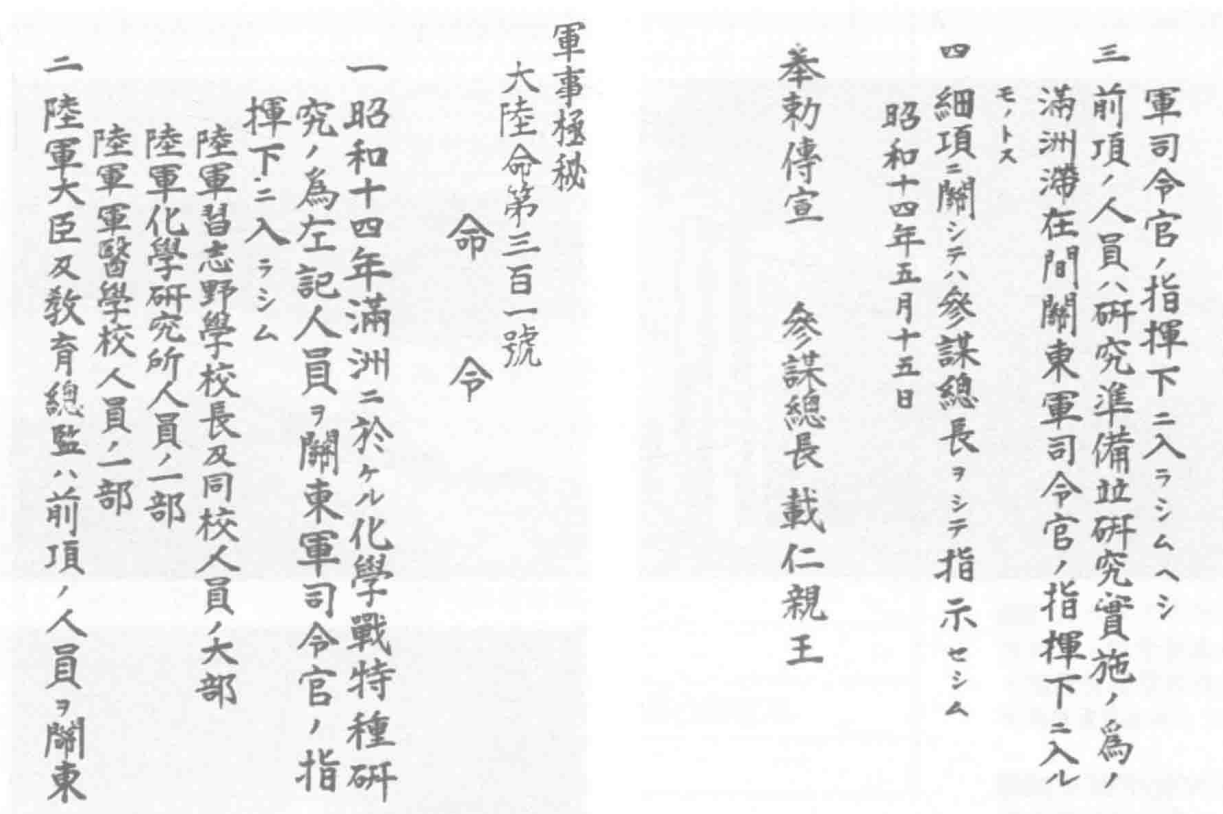 軍事極秘
大陸命第三百一號
命令
一 昭和十四年滿洲ニ於ケル化學戰特種研
究ノ為左記人員ヲ關東軍司令官ノ指
揮下ニ入ラシム
陸軍習志野學校長及同校人員ノ大部
陸軍化學研究所人員ノ一部
陸軍軍醫學校人員ノ一部
二 陸軍大臣及敎育總監ハ前項ノ人員ヲ關東
軍司令官ノ指揮下ニ入ラシムヘシ
三 前項ノ人員ハ研究準備竝研究實施ノ爲ノ
滿洲滯在間關東軍司令官ノ指揮下ニ入ル
モノトス
四 細項ニ關シテハ參謀總長ヲシテ指示セシム
昭和十四年五月十五日
奉勅傳宣 參謀總長載仁親王